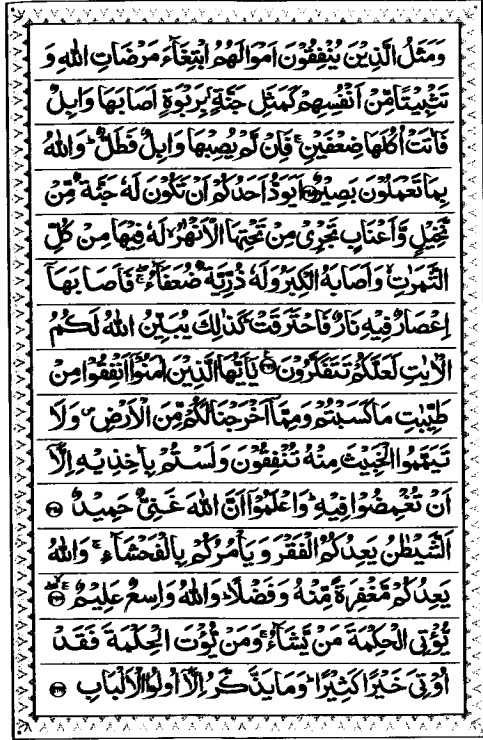 وَمَثَلُ الَّذِيْنَ يُنْفِقُوْنَ اَمْوَالَهُمُ ابْتِغَآءَ مَرْضَاتِ اللّٰهِ وَ
تَثْبِيْتًا مِّنْ اَنْفُسِهِمْ كَمَثَلِ جَنَّةٍۭ بِرَبْوَةٍ اَصَابَهَا وَابِلٌ
فَاٰتَتْ اُكُلَهَا ضِعْفَيْنِ ۚ فَاِنْ لَّمْ يُصِبْهَا وَابِلٌ فَطَلٌّ ؕ وَاللّٰهُ
بِمَا تَعْمَلُوْنَ بَصِيْرٌ ۝۲۶۵ اَيَوَدُّ اَحَدُكُمْ اَنْ تَكُوْنَ لَهٗ جَنَّةٌ مِّنْ
نَّخِيْلٍ وَّاَعْنَابٍ تَجْرِيْ مِنْ تَحْتِهَا الْاَنْهٰرُ ۙ لَهٗ فِيْهَا مِنْ كُلِّ
الثَّمَرٰتِ ۙ وَاَصَابَهُ الْكِبَرُ وَلَهٗ ذُرِّيَّةٌ ضُعَفَآءُ ۖۚ فَاَصَابَهَآ
اِعْصَارٌ فِيْهِ نَارٌ فَاحْتَرَقَتْ ؕ كَذٰلِكَ يُبَيِّنُ اللّٰهُ لَكُمُ
الْاٰيٰتِ لَعَلَّكُمْ تَتَفَكَّرُوْنَ ۝۲۶۶ يٰۤاَيُّهَا الَّذِيْنَ اٰمَنُوْۤا اَنْفِقُوْا مِنْ
طَيِّبٰتِ مَا كَسَبْتُمْ وَمِمَّاۤ اَخْرَجْنَا لَكُمْ مِّنَ الْاَرْضِ ۪ وَلَا
تَيَمَّمُوا الْخَبِيْثَ مِنْهُ تُنْفِقُوْنَ وَلَسْتُمْ بِاٰخِذِيْهِ اِلَّاۤ
اَنْ تُغْمِضُوْا فِيْهِ ؕ وَاعْلَمُوْۤا اَنَّ اللّٰهَ غَنِيٌّ حَمِيْدٌ ۝۲۶۷
اَلشَّيْطٰنُ يَعِدُكُمُ الْفَقْرَ وَيَاْمُرُكُمْ بِالْفَحْشَآءِ ۚ وَاللّٰهُ
يَعِدُكُمْ مَّغْفِرَةً مِّنْهُ وَفَضْلًا ؕ وَاللّٰهُ وَاسِعٌ عَلِيْمٌ ۝۲۶۸
يُّؤْتِي الْحِكْمَةَ مَنْ يَّشَآءُ ۚ وَمَنْ يُّؤْتَ الْحِكْمَةَ فَقَدْ
اُوْتِيَ خَيْرًا كَثِيْرًا ؕ وَمَا يَذَّكَّرُ اِلَّاۤ اُولُوا الْاَلْبَابِ ۝۲۶۹